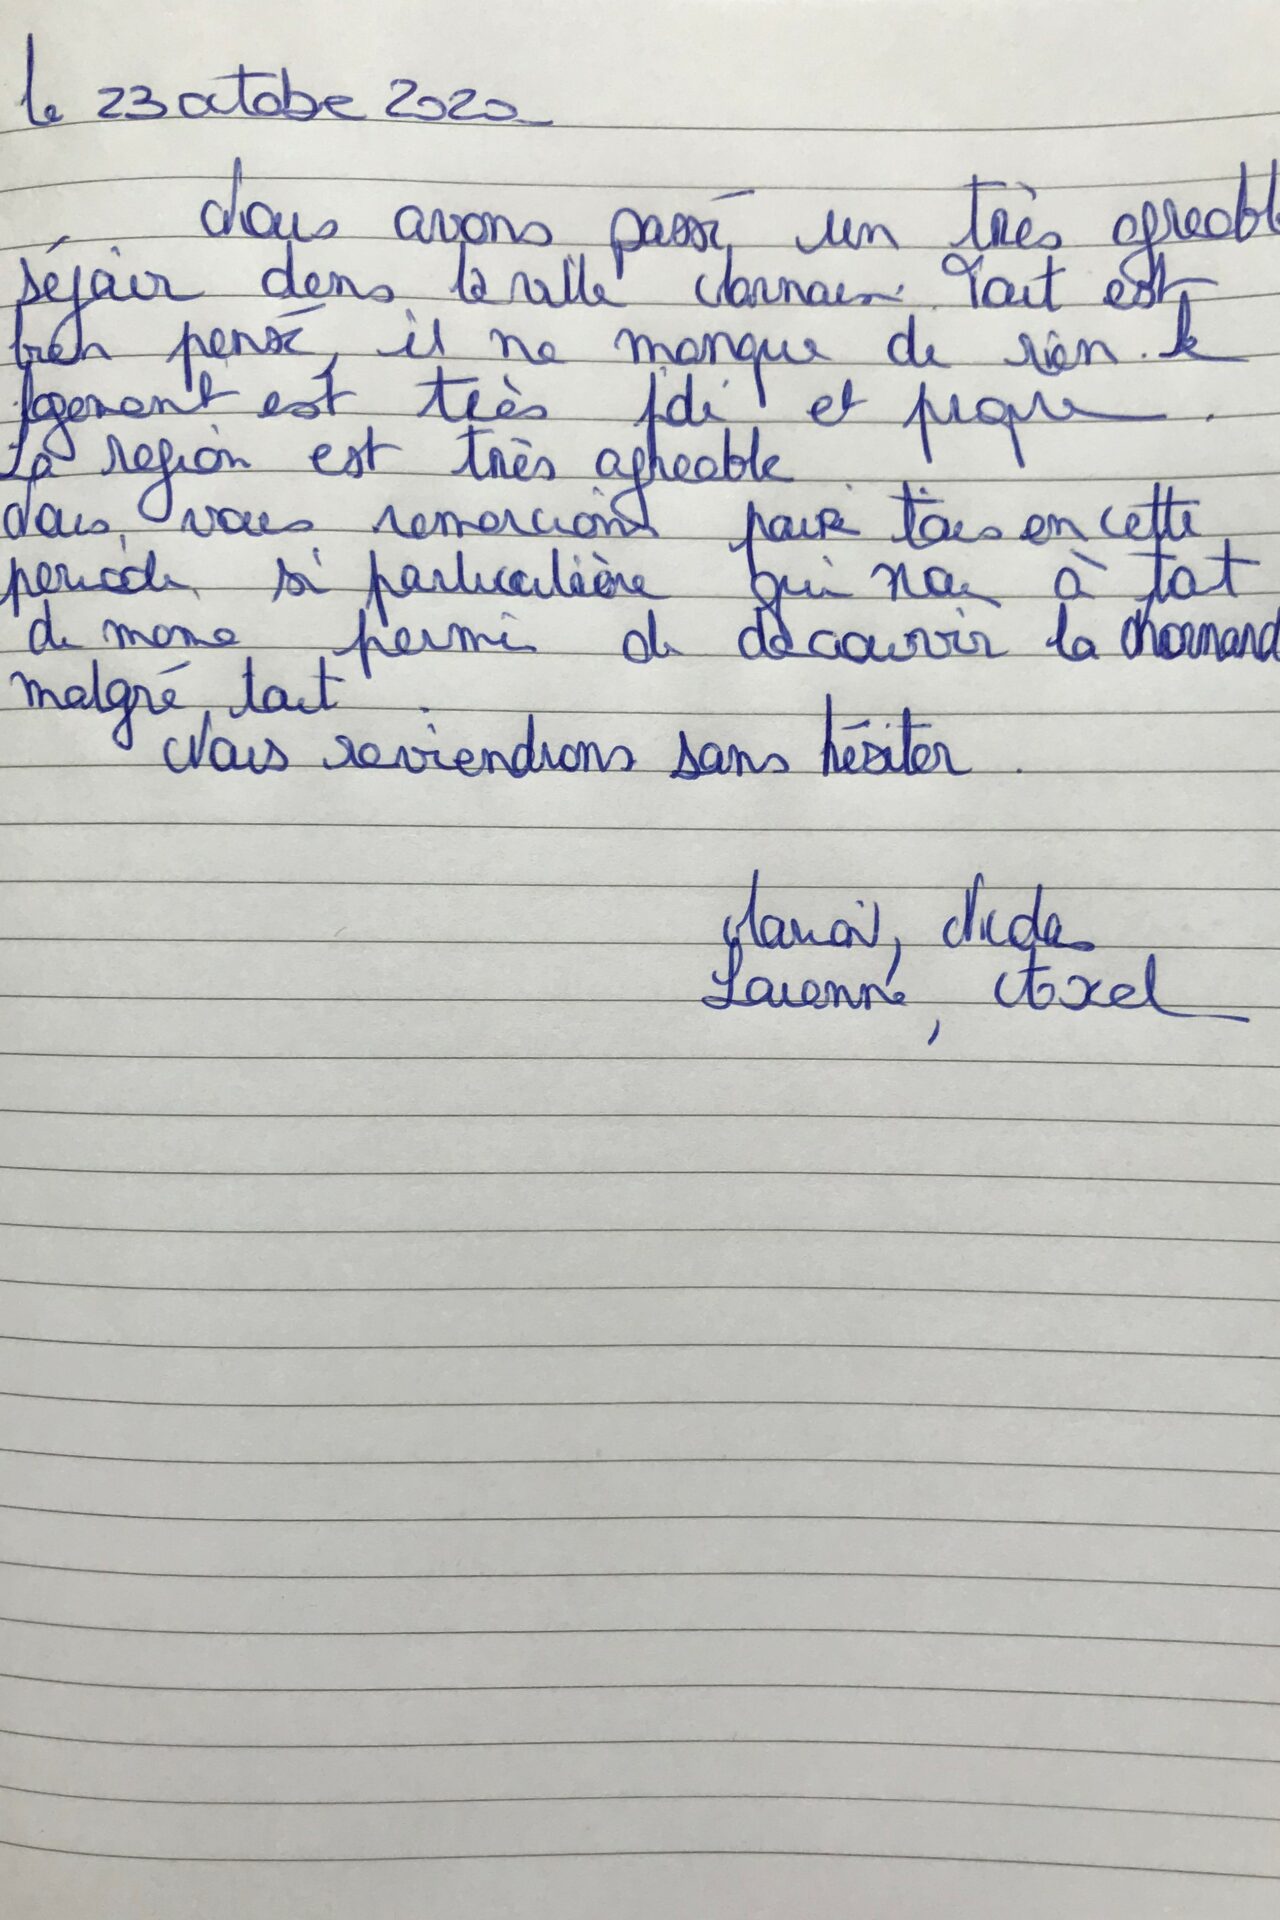 le 23 octobe 2020
Nous avons passé un très agreabl
séjour dans la ville . Tout est
bien pensé, il ne manque de rien. Le
logement est très joli et propre .
La region est très agreable
Nous vous remercions pour tous en cette
periode si particulière qui nous à tout
de meme permi de découvrir la Normand
malgré tout .
Nous reviendrons sans hésiter .
Axel